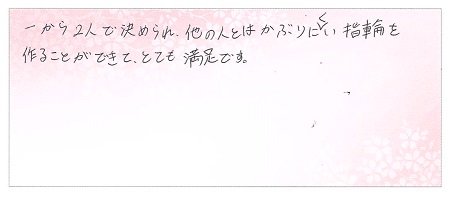 一から2人で決められ、他の人とはかぶりにくい指輪を
作ることができて、とても満足です。